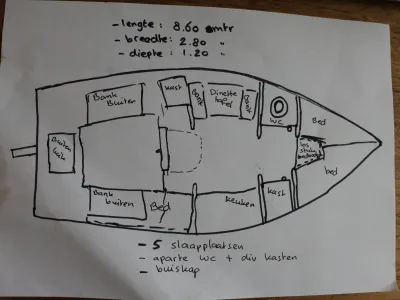 - lengte: 8.60 mtr
- breedte: 2.80 "
- diepte: 1.20 "
Bank
Buiten
kast
Bank
Dinette
tafel
Bank
WC
Bed
Buiten
los
bed
Bank
buiten
Bed
keuken
kast
- 5 slaapplaatsen
- aparte wc + div kasten
- buiskap